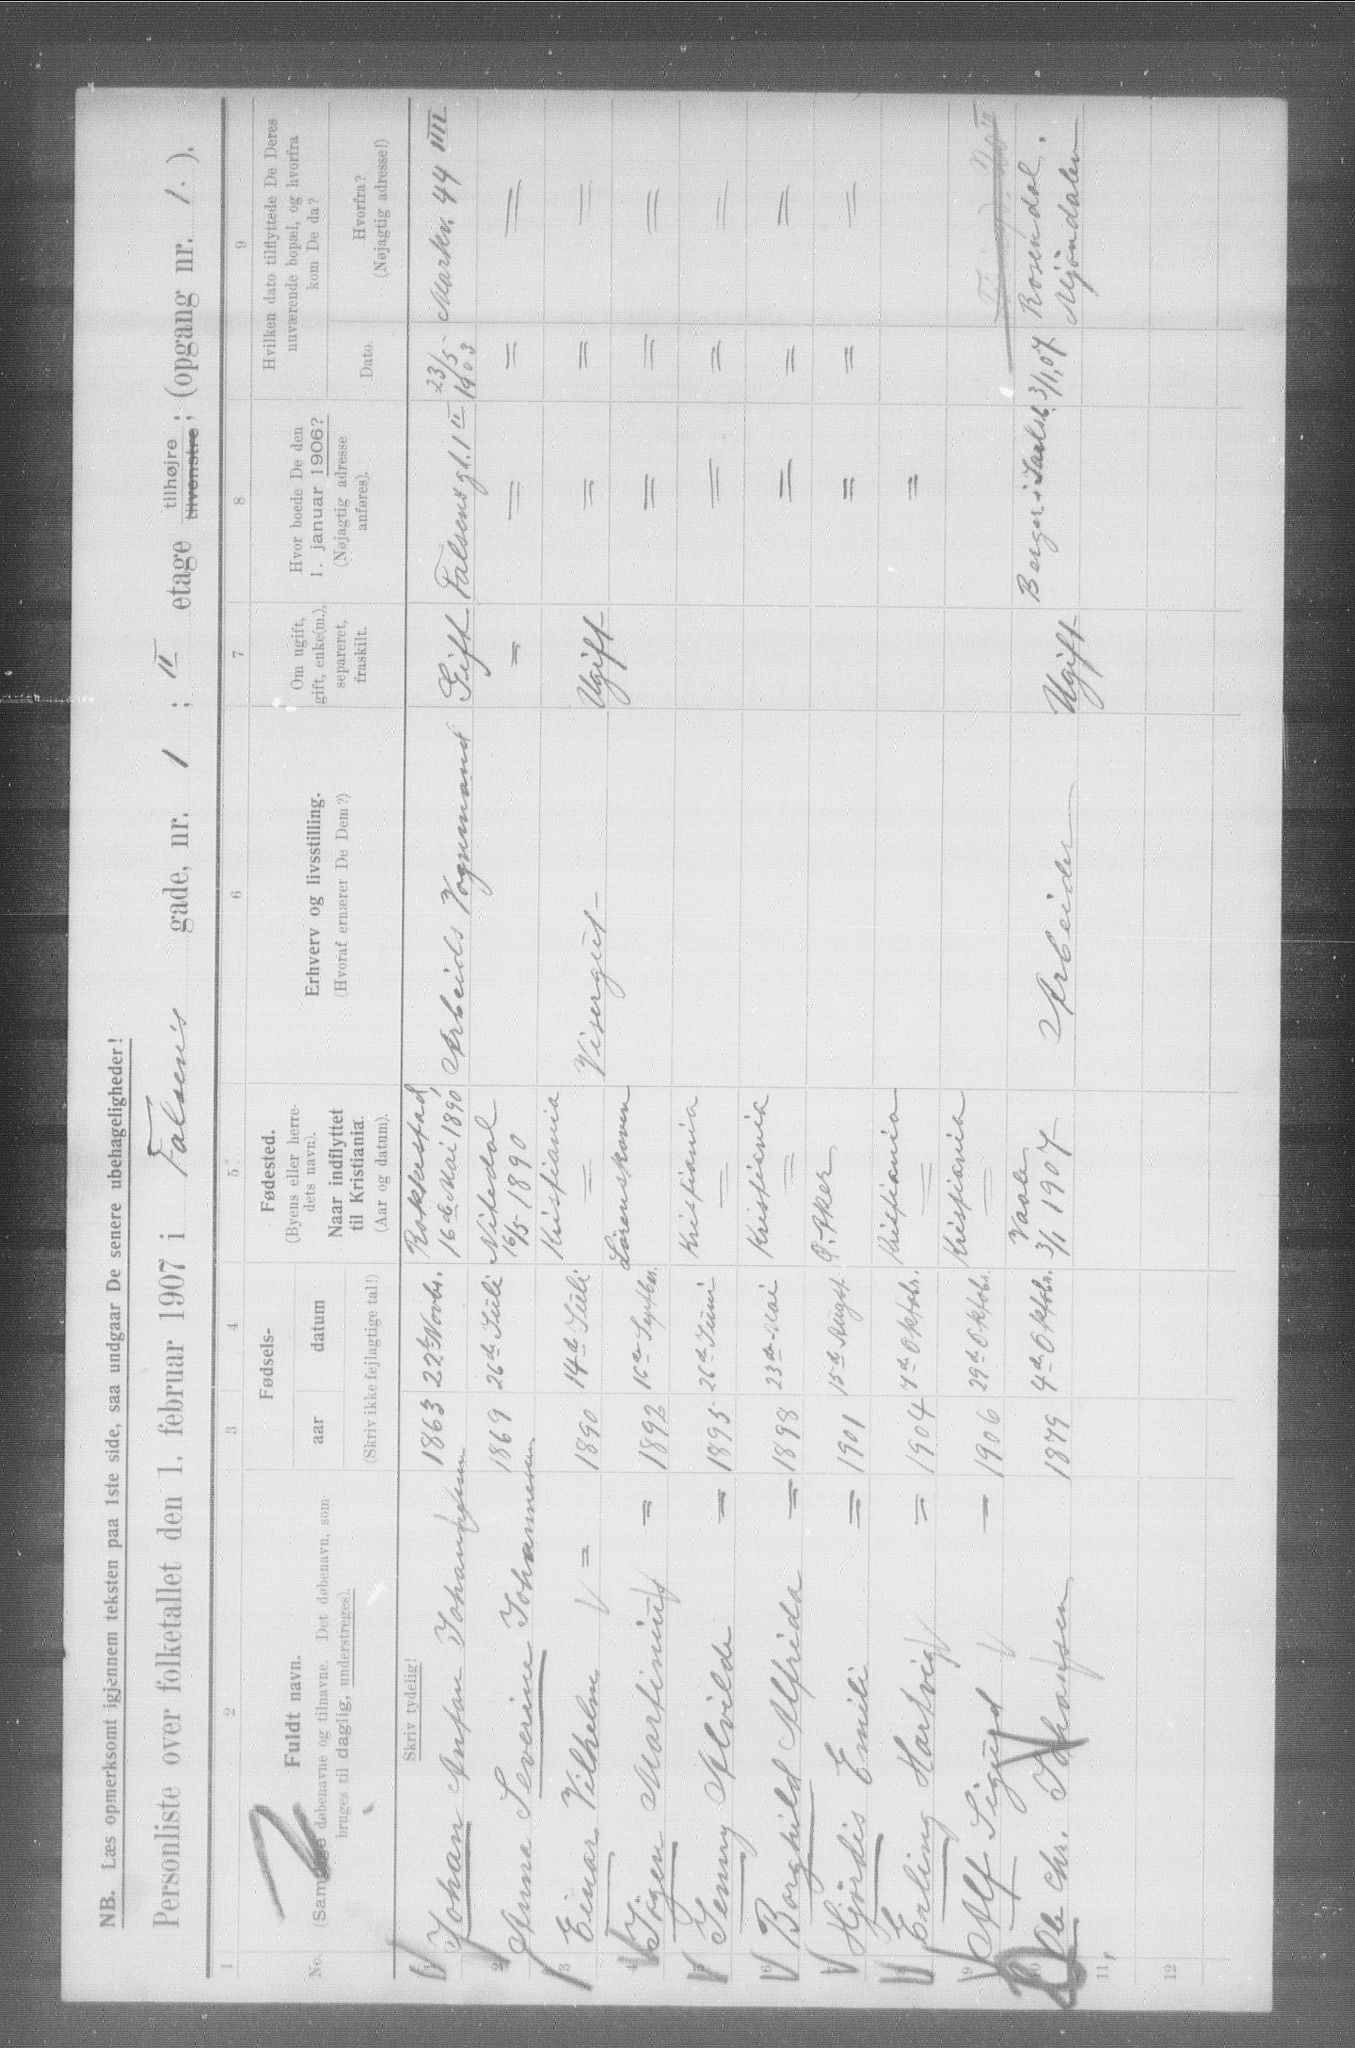 NB. Læs opmerksomt igjennem teksten paa 1ste side, saa undgaar De senere ubehageligheder!
Personliste over folketallet den 1. februar 1907 i Falsen's gade, nr. 1 ; II etage tilhøjre tilvenstre ; (opgang nr. 1. ).
1 2 3 4 5 6 7 8 9
No. Fuldt navn. (Samtlige døbenavne og tilnavne. Det døbenavn, som bruges til daglig, understreges).
Fødsels- aar datum
(Skriv ikke fejlagtige tal!)
Fødested. (Byens eller herredets navn). Naar indflyttet til Kristiania. (Aar og datum).
Erhverv og livsstilling. (Hvoraf ernærer De Dem?)
Om ugift, gift, enke(m.), separeret, fraskilt.
Hvor boede De den 1. januar 1906? (Nøjagtig adresse anføres).
Hvilken dato tilflyttede De Deres nuværende bopæl, og hvorfra kom De da?
Dato. Hvorfra? (Nøjagtig adresse!)
Skriv tydelig!
1 Johan Anton Johansen 1863 22de Novbr. Rakkestad 16de Mai 1890 Arbeids Vognmand Gift Falsensgt. 1 II 23/5 1903 Markv. 44 III
2 Anna Severine Johannessen 1869 26de Juli Nitedal 16/5 1890 = = = =
3 Einar Vilhelm = 1890 14de Juli Kristiania = Visergut Ugift = = =
4 Jögen Martinius = 1892 16de Septbr. Lörenskoven = = =
5 Jenny Alvilde = 1895 26de Juni Kristiania = = = =
6 Borghild Alfrida = 1898 23de Mai Kristiania = = = =
7 Hjördis Emili = 1901 15de August Ø. Aker = = =
8 Erling Hartvig = 1904 7de Oktobr. Kristiania = =
9 Alf Sigurd = 1906 29de Oktobr. Kristiania =
10 Ole Chr. Johansen 1879 4de Oktobr. Vaale 3/1 1907 Arbeider Ugift Berger i 3/1,07 Rosendal. Mjöndalen
11
12